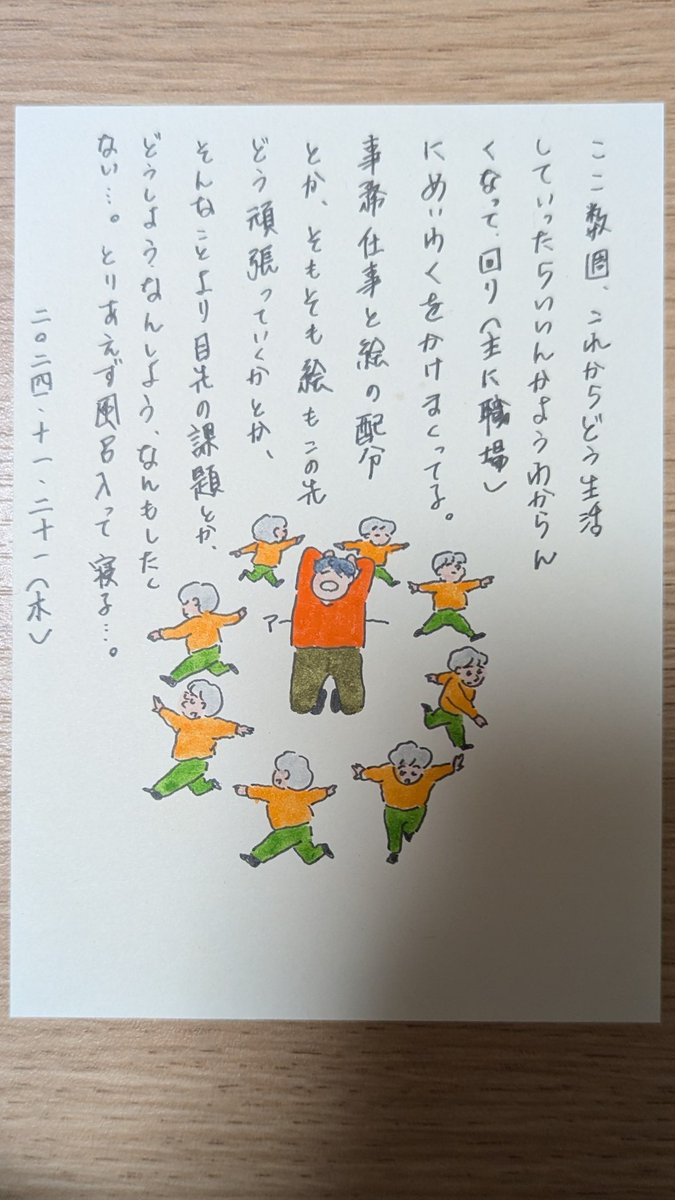 ここ数週、これからどう生活
していったらいいんかようわからん
くなって、回り(主に職場)
にめいわくをかけまくってる。
事務仕事と絵の配分
とか、そもそも絵もこの先
どう頑張っていくかとか、
そんなことより目先の課題とか、
どうしようなんしよう、なんもしたく
ない…。とりあえず風呂入って寝る…。
二〇二四・十一・二十一(木)
アー